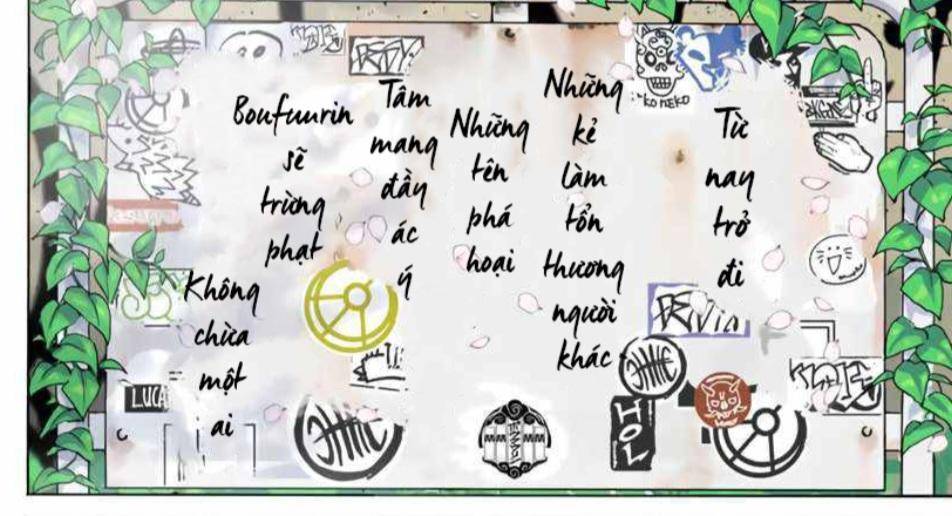 Từ nay trở đi
Những kẻ làm tổn thương người khác
Những tên phá hoại
Tâm mang đầy ác ý
Boufuurin sẽ trừng phạt
Không chừa một ai
KOMEKO
LUCA
HOL